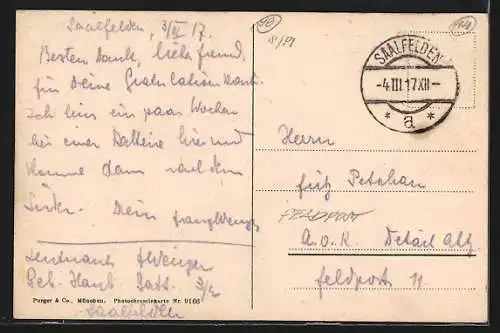 Saalfelden, 3/III 17.
Besten Dank, lieber Freund,
für Deine Gratulationskarte.
Ich bin ein paar Wochen
bei einer Batterie hier und
komme dann nach dem
Süden. Dein
Leutnant
Geb. Haub. Batt. 3/2
Saalfelden
Purger & Co., München. Photochromiekarte Nr. 9166
8/91
SAALFELDEN
-4.III.17XII-
* a *
Herrn
Fritz Petschau
FELDPOST
A.O.K. Detail Abt.
Feldpost 11